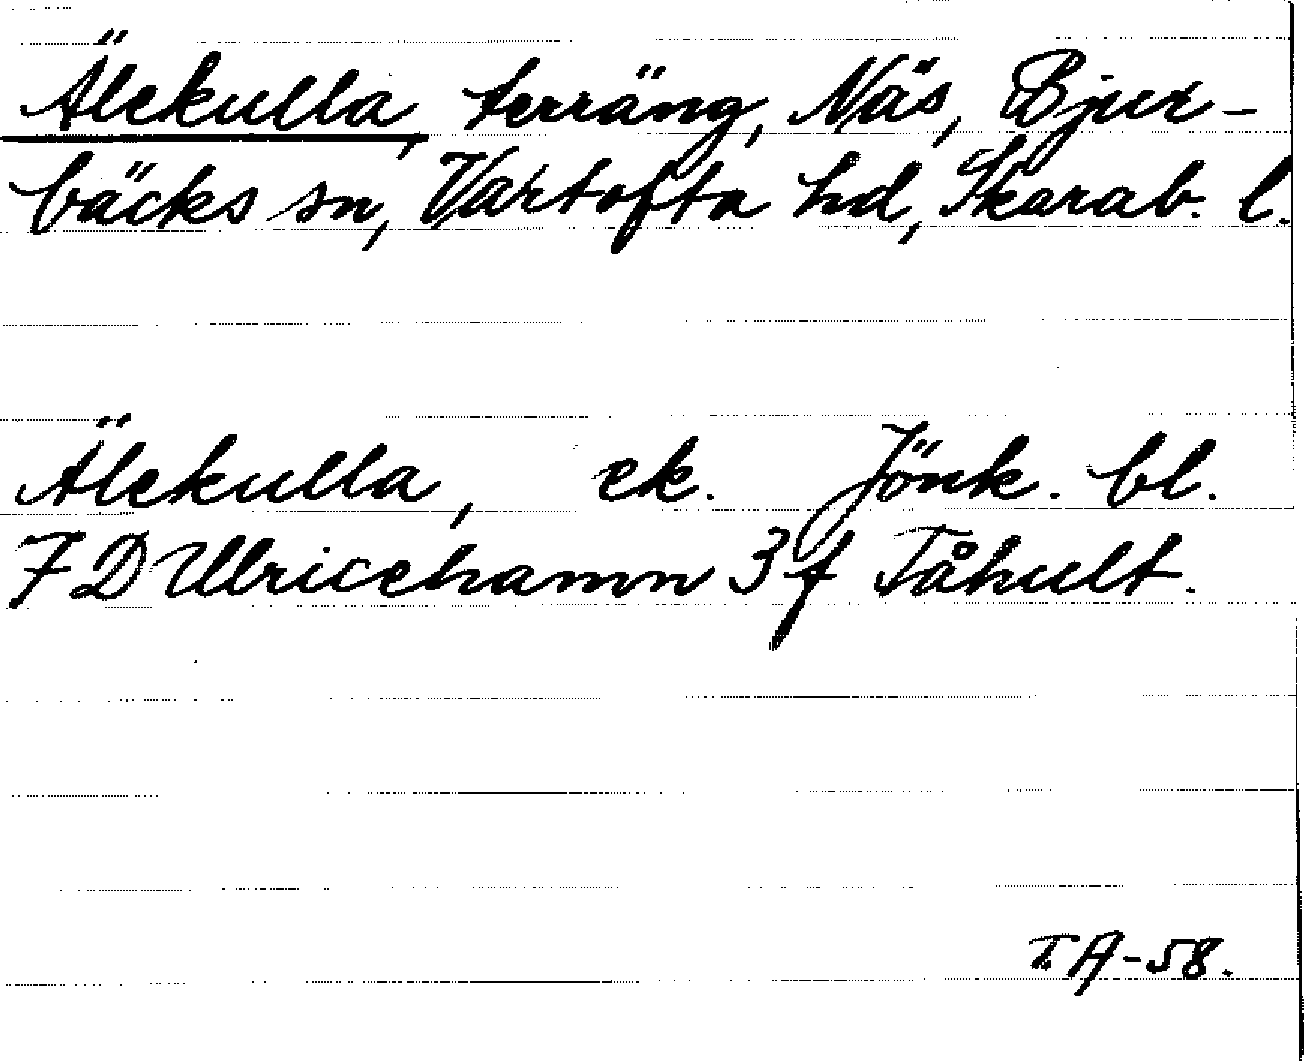 Älekulla, terräng, Näs, Bjur-
bäcks sn, Vartofta hd, Skarab. l.
Älekulla, ek. Jönk. bl.
7 D Ulricehamn 3 f Tåhult.
T.A-58.